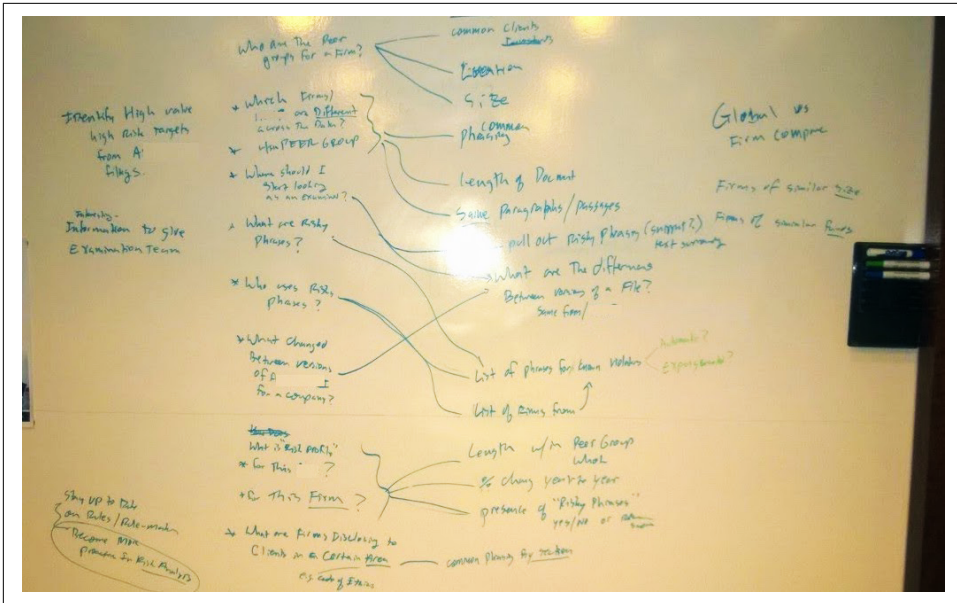 Identify High value
high Risk targets
from A
filings.
Information to give
Examination Team
Stay up to Date
on Rules/Rule-
Become More
proactive in Risk Analysis
Who Are The Peer
groups for a Firm?
* Which Firms/
are Different
across The Data?
* PEER GROUP
* Where should I
start looking
as an examiner?
* What are Risky
Phrases?
* Who uses Risky
phrases?
* What Changed
Between versions
of A
for a company?
What is "Risk Profile"
* for This ?
* for This Firm?
* What are Firms Disclosing to
Clients in a Certain Area
e.g. code of Ethics
common Clients
Location
Size
common
phrasing
Length of Document
Same Paragraphs/passages
pull out Risky Phrases (snippet?)
text summary
What are The differences
Between versions of a File?
same firm/
List of phrases for known violators
List of Firms from
Automate?
Length w/in Peer Group
% change year to year
presence of "Risky Phrases"
yes/no or
common phrases by section
Global vs
Firm Compare
Firms of similar Size
Firms of similar